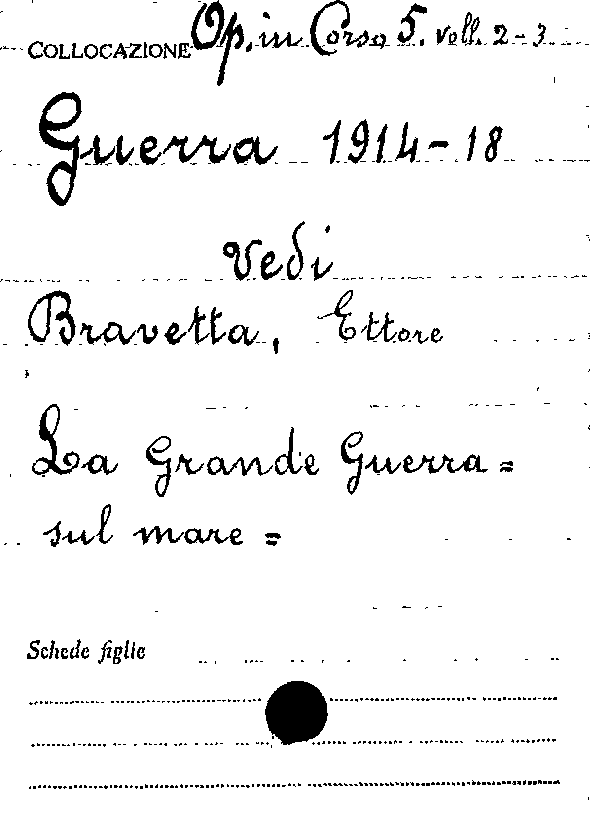 COLLOCAZIONE Op. in Corso 5. voll. 2-3
Guerra 1914-18
vedi
Bravetta, Ettore
La Grande Guerra =
sul mare =
Schede figlie